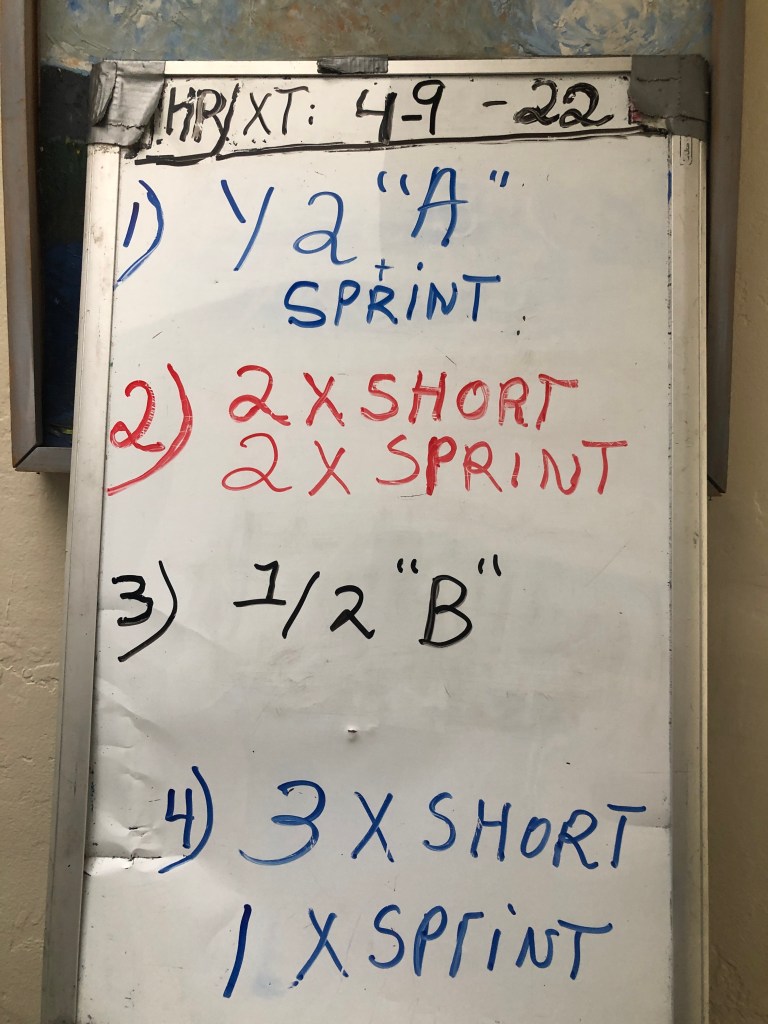 HP/XT: 4-9-22
1) 1/2 "A"
+
SPRINT
2) 2 X SHORT
2 X SPRINT
3) 1/2 "B"
4) 3 X SHORT
1 X SPRiNT